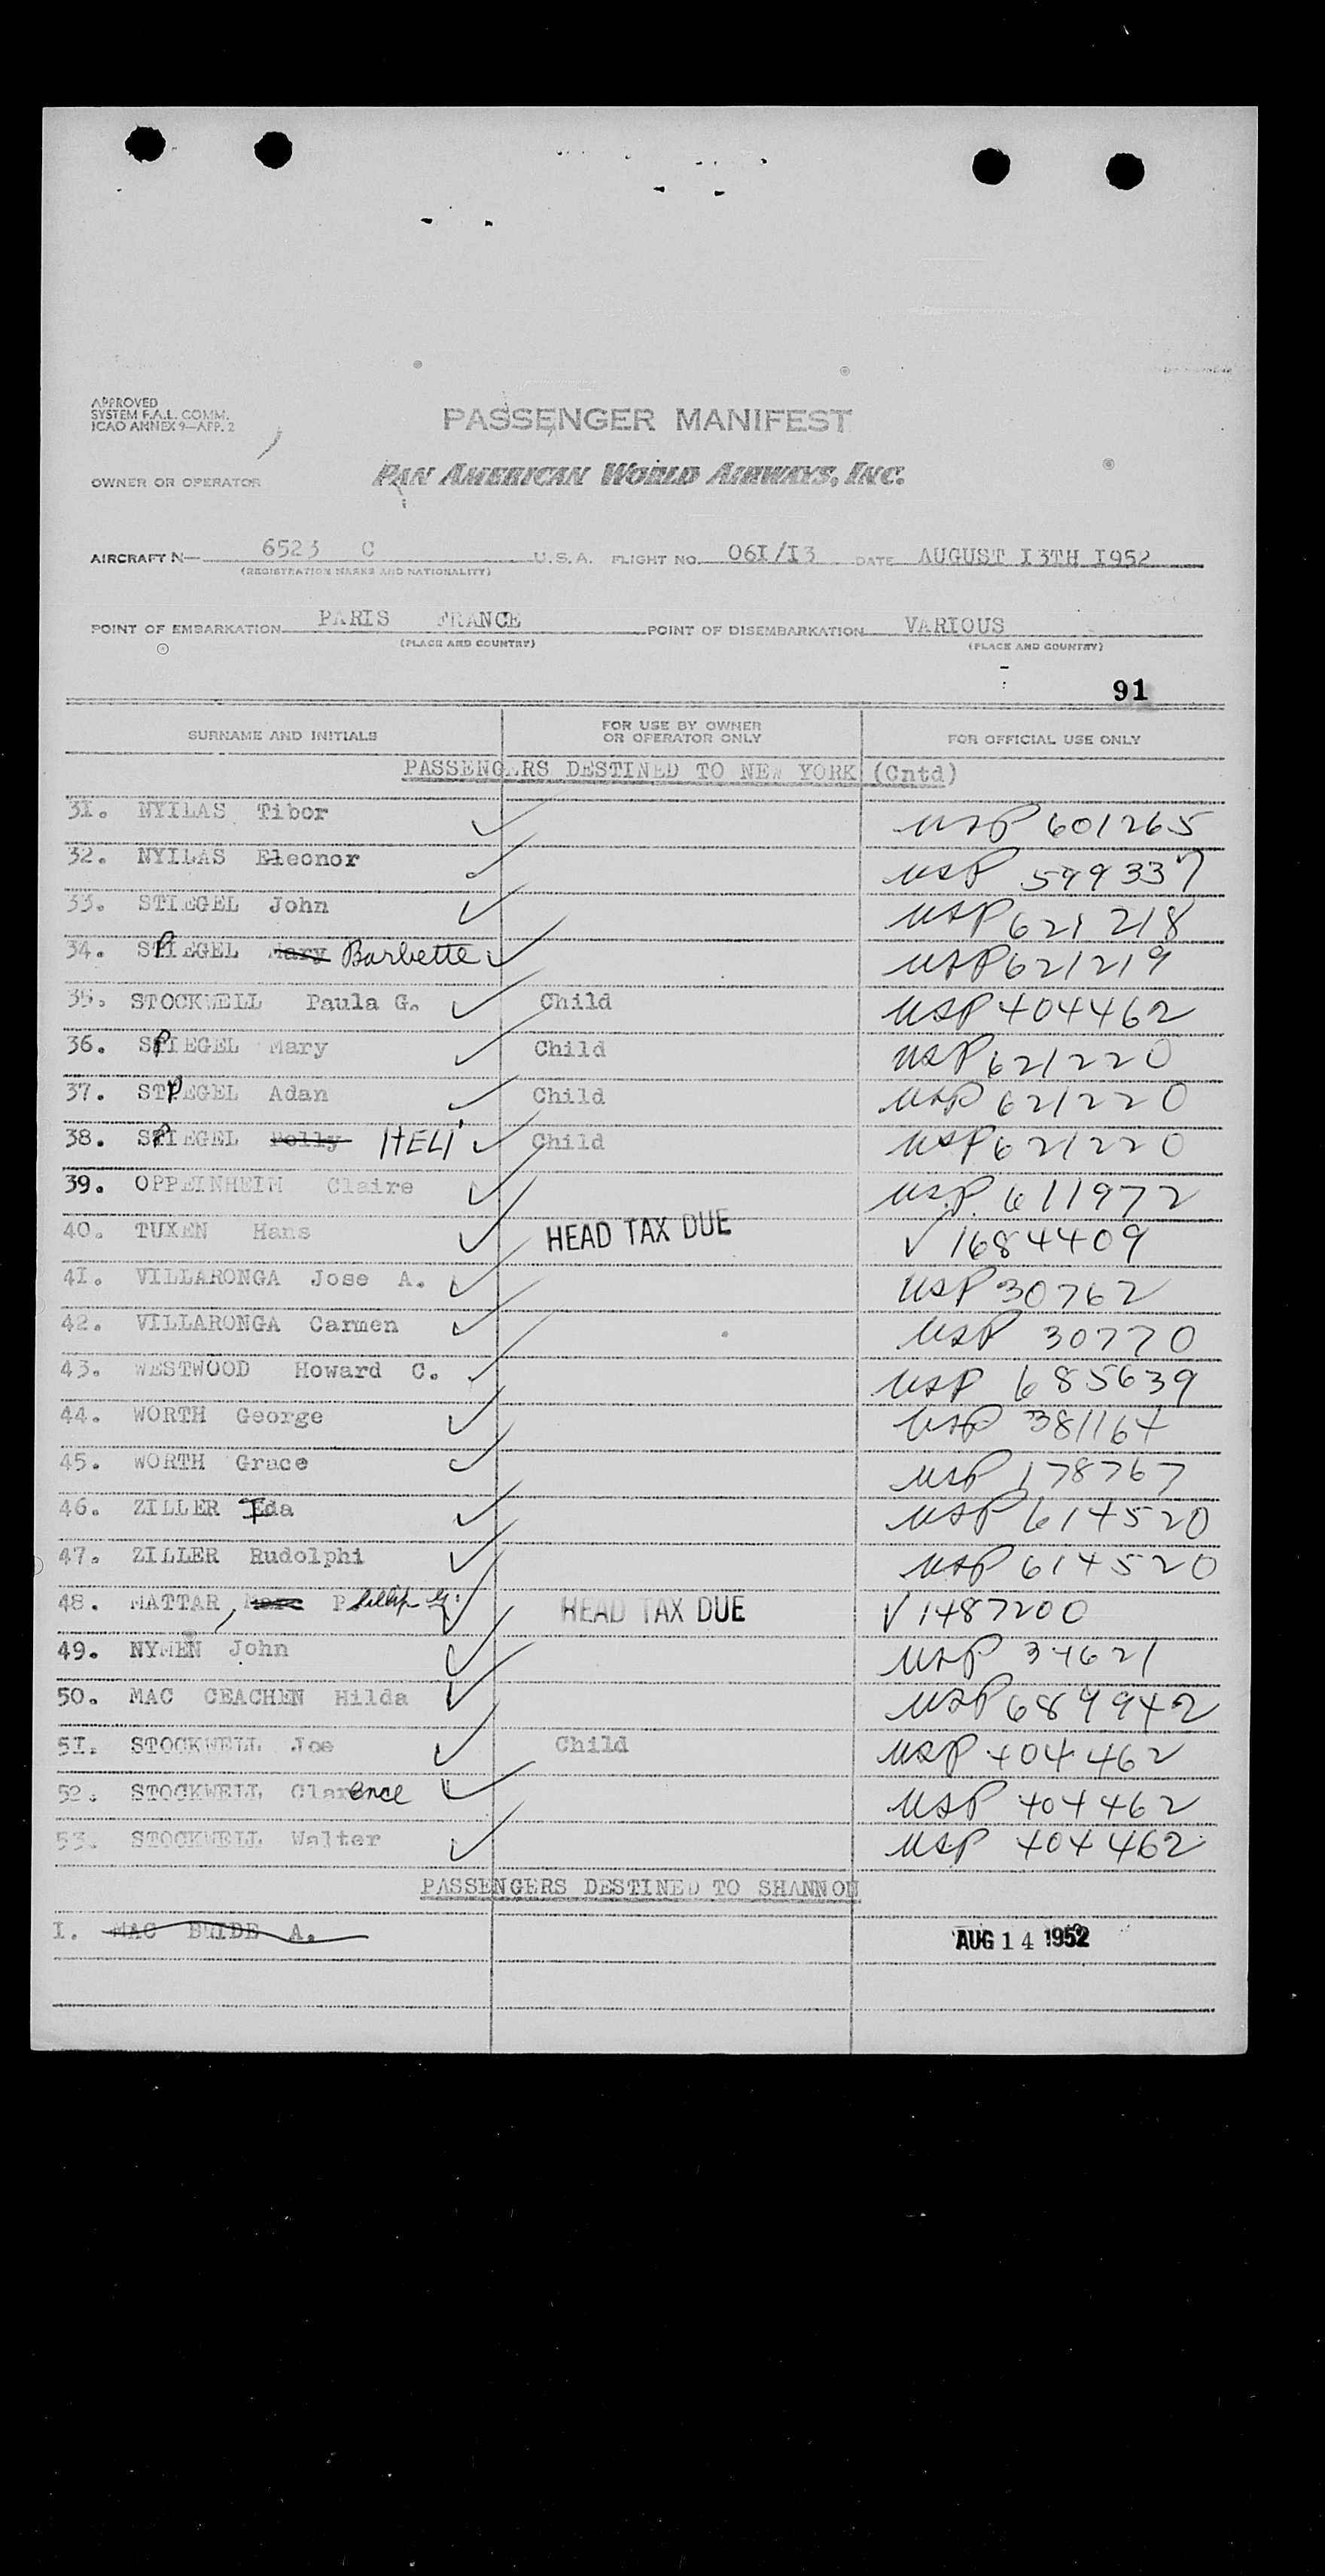 APPROVED
SYSTEM F.A.L. COMM.
ICAO ANNEX 9—APP. 2
PASSENGER MANIFEST
OWNER OR OPERATOR PAN AMERICAN WORLD AIRWAYS, INC.
AIRCRAFT N— 6523 C U.S.A. FLIGHT NO. 06I/I3 DATE AUGUST I3TH I952
(REGISTRATION MARKS AND NATIONALITY)
POINT OF EMBARKATION PARIS FRANCE POINT OF DISEMBARKATION VARIOUS
(PLACE AND COUNTRY) (PLACE AND COUNTRY)
91
SURNAME AND INITIALS FOR USE BY OWNER OR OPERATOR ONLY FOR OFFICIAL USE ONLY
PASSENGERS DESTINED TO NEW YORK (Cntd)
3I. NYILAS Tibor ✓ USP 601265
32. NYILAS Eleonor ✓ USP 599337
33. STIEGEL John ✓ USP 621218
34. SPIEGEL Mary Barbette ✓ USP 621219
35. STOCKWELL Paula G. ✓ Child USP 404462
36. SPIEGEL Mary ✓ Child USP 621220
37. STPEGEL Adan ✓ Child USP 621220
38. SPIEGEL Polly HELI ✓ Child USP 621220
39. OPPEINHEIM Claire ✓ USP 611972
40. TUXEN Hans ✓ HEAD TAX DUE V 1684409
4I. VILLARONGA Jose A. ✓ USP 30762
42. VILLARONGA Carmen ✓ USP 30770
43. WESTWOOD Howard C. ✓ USP 685639
44. WORTH George ✓ USP 381164
45. WORTH Grace ✓ USP 178767
46. ZILLER Ida ✓ USP 614520
47. ZILLER Rudolphi ✓ USP 614520
48. MATTAR, Marc Phillip G. ✓ HEAD TAX DUE V 1487200
49. NYMEN John ✓ USP 34621
50. MAC CEACHEN Hilda ✓ USP 689942
5I. STOCKWELL Joe ✓ Child USP 404462
52. STOCKWELL Clarence ✓ USP 404462
53. STOCKWELL Walter ✓ USP 404462
PASSENGERS DESTINED TO SHANNON
I. MAC BRIDE A. AUG 14 1952